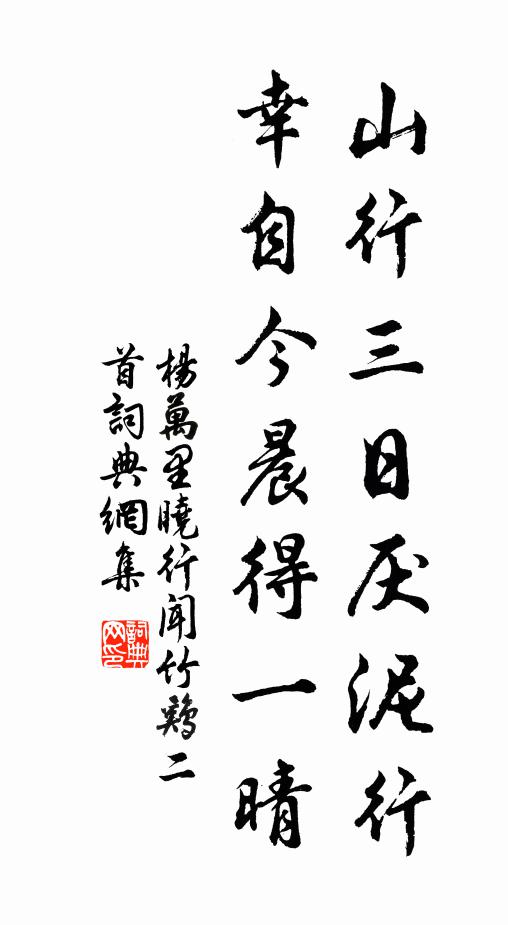 山行三日厌泥行
幸自今晨得一晴
楊萬里曉行聞竹鷄二
首詞典網集
詞典
网印